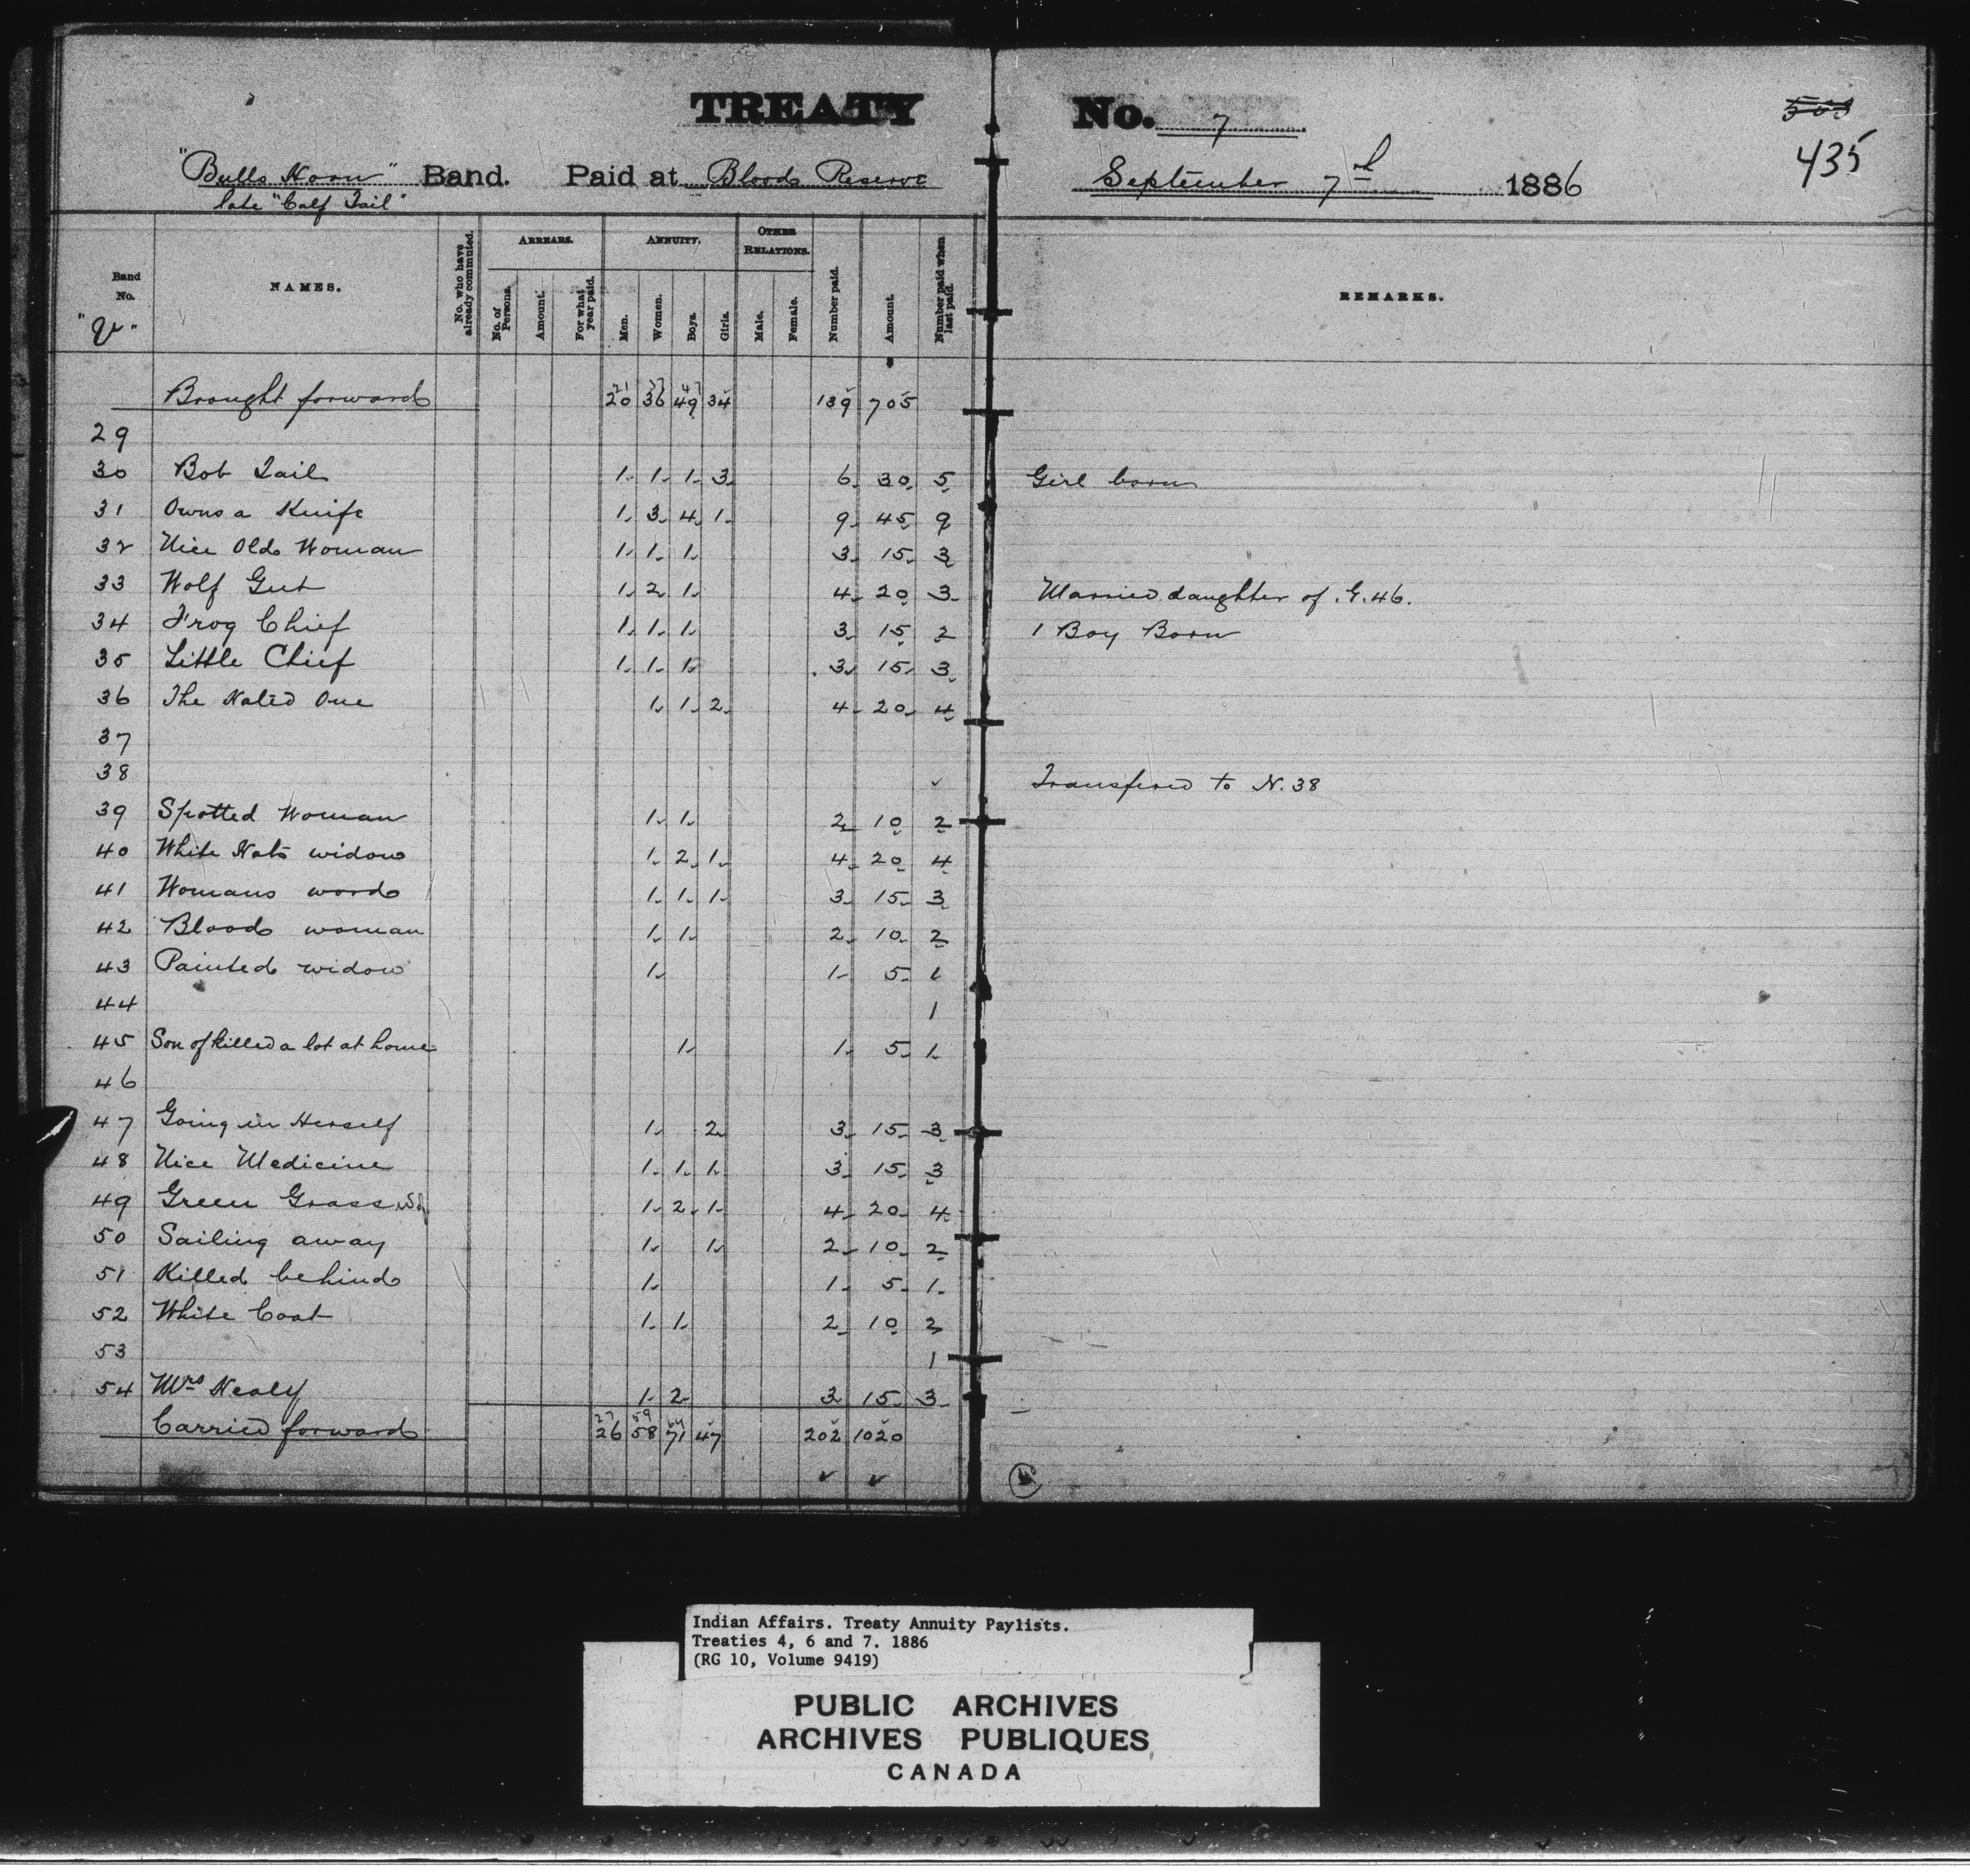 TREATY No. 7
505
435
"Bulls Horn" Band. Paid at Blood Reserve September 7th 1886
late "Calf Tail"
Band No. NAMES. No. who have already commuted. ARREARS. No. of Persons. Amount. For what year paid. ANNUITY. Men. Women. Boys. Girls. OTHER RELATIONS. Male. Female. Number paid. Amount. Number paid when last paid. REMARKS.
21 37 47
Brought forward 20 36 49 34 139 705
29
30 Bob Tail 1 1 1 3 6 30 5 Girl born
31 Owns a Knife 1 3 4 1 9 45 9
32 Nice Old Woman 1 1 1 3 15 3
33 Wolf Gut 1 2 1 4 20 3 Married daughter of G.46.
34 Frog Chief 1 1 1 3 15 2 1 Boy Born
35 Little Chief 1 1 1 3 15 3
36 The Hated One 1 1 2 4 20 4
37
38 Transfered to N.38
39 Spotted Woman 1 1 2 10 2
40 White Hats widow 1 2 1 4 20 4
41 Womans word 1 1 1 3 15 3
42 Blood woman 1 1 2 10 2
43 Painted widow 1 1 5 1
44 1
45 Son of killed a lot at home 1 1 5 1
46
47 Going in Herself 1 2 3 15 3
48 Nice Medicine 1 1 1 3 15 3
49 Green Grass 1 2 1 4 20 4
50 Sailing away 1 1 2 10 2
51 Killed behind 1 1 5 1
52 White Coat 1 1 2 10 2
53 1
54 Mrs Healy 1 2 3 15 3
27 59
Carried forward 26 58 71 47 202 1020
Indian Affairs. Treaty Annuity Paylists.
Treaties 4, 6 and 7. 1886
(RG 10, Volume 9419)
PUBLIC ARCHIVES
ARCHIVES PUBLIQUES
CANADA